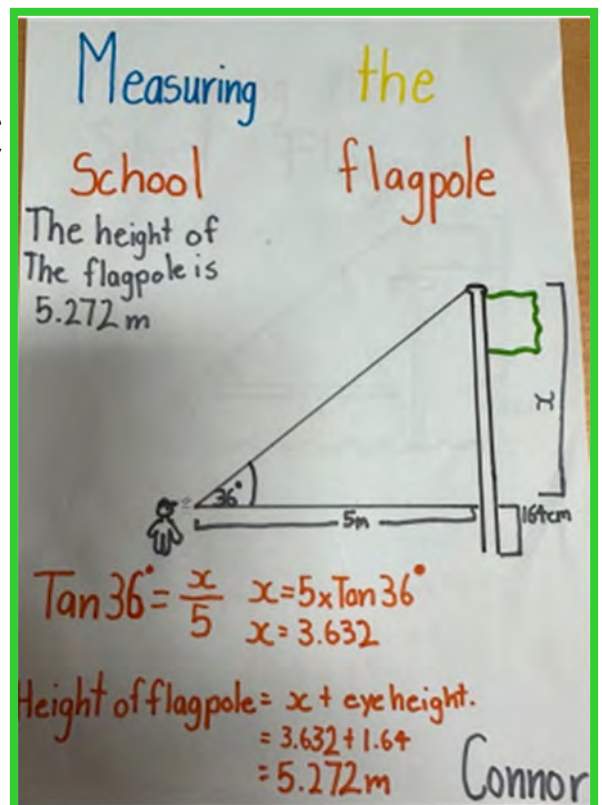 Measuring the
School flagpole
The height of
The flagpole is
5.272m
x
36°
5m
164cm
Tan 36° = x/5 x=5xTan 36°
x=3.632
Height of flagpole = x + eye height.
= 3.632+1.64
= 5.272m
Connor